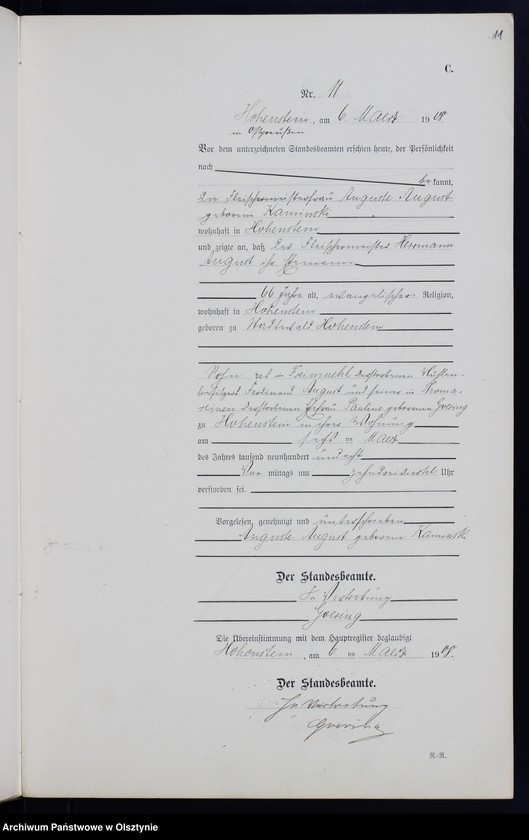 11
C.
Nr. 11
Hohenstein, am 6. Maerz 1908
in Ostpreußen
Vor dem unterzeichneten Standesbeamten erschien heute, der Persönlichkeit
nach
bekannt,
Die Fleischermeisterfrau Auguste August
geborene Kaminski
wohnhaft in Hohenstein
und zeigte an, daß der Fleischermeister Herrmann
August ihr Ehemann
66 Jahre alt, evangelischer Religion,
wohnhaft in Hohenstein
geboren zu Stadtwald Hohenstein
Sohn des in verstorbenen
Ferdinand August und seiner in
verstorbenen Ehefrau Pauline geborenen Goesing
zu Hohenstein in ihrer Wohnung
am sechs ten Maerz
des Jahres tausend neunhundert und acht
Vor mittags um Uhr
verstorben sei.
Vorgelesen, genehmigt und unterschrieben
Auguste August geborene Kaminski
Der Standesbeamte.
In Vertretung
Goesing
Die Übereinstimmung mit dem Hauptregister beglaubigt
Hohenstein, am 6 ten Maerz 1908.
Der Standesbeamte.
In Vertretung
Goesing
R.-R.
Archiwum Państwowe w Olsztynie